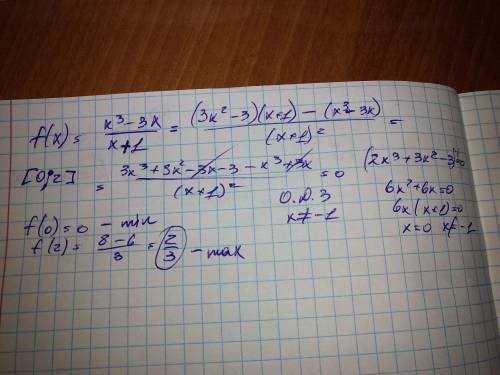 f(x) = (x³ − 3x)/(x+1) = ((3x² − 3)(x+1) − (x³ − 3x))/(x+1)² =
[0;2] = (3x³ + 3x² − 3x − 3 − x³ + 3x)/(x+1)² = 0 (2x³ + 3x² − 3)'=0
О.Д.З 6x² + 6x = 0
x ≠ −1 6x(x+1) = 0
x = 0 x ≠ −1
f(0) = 0 − min
f(2) = (8 − 6)/3 = 2/3 − max